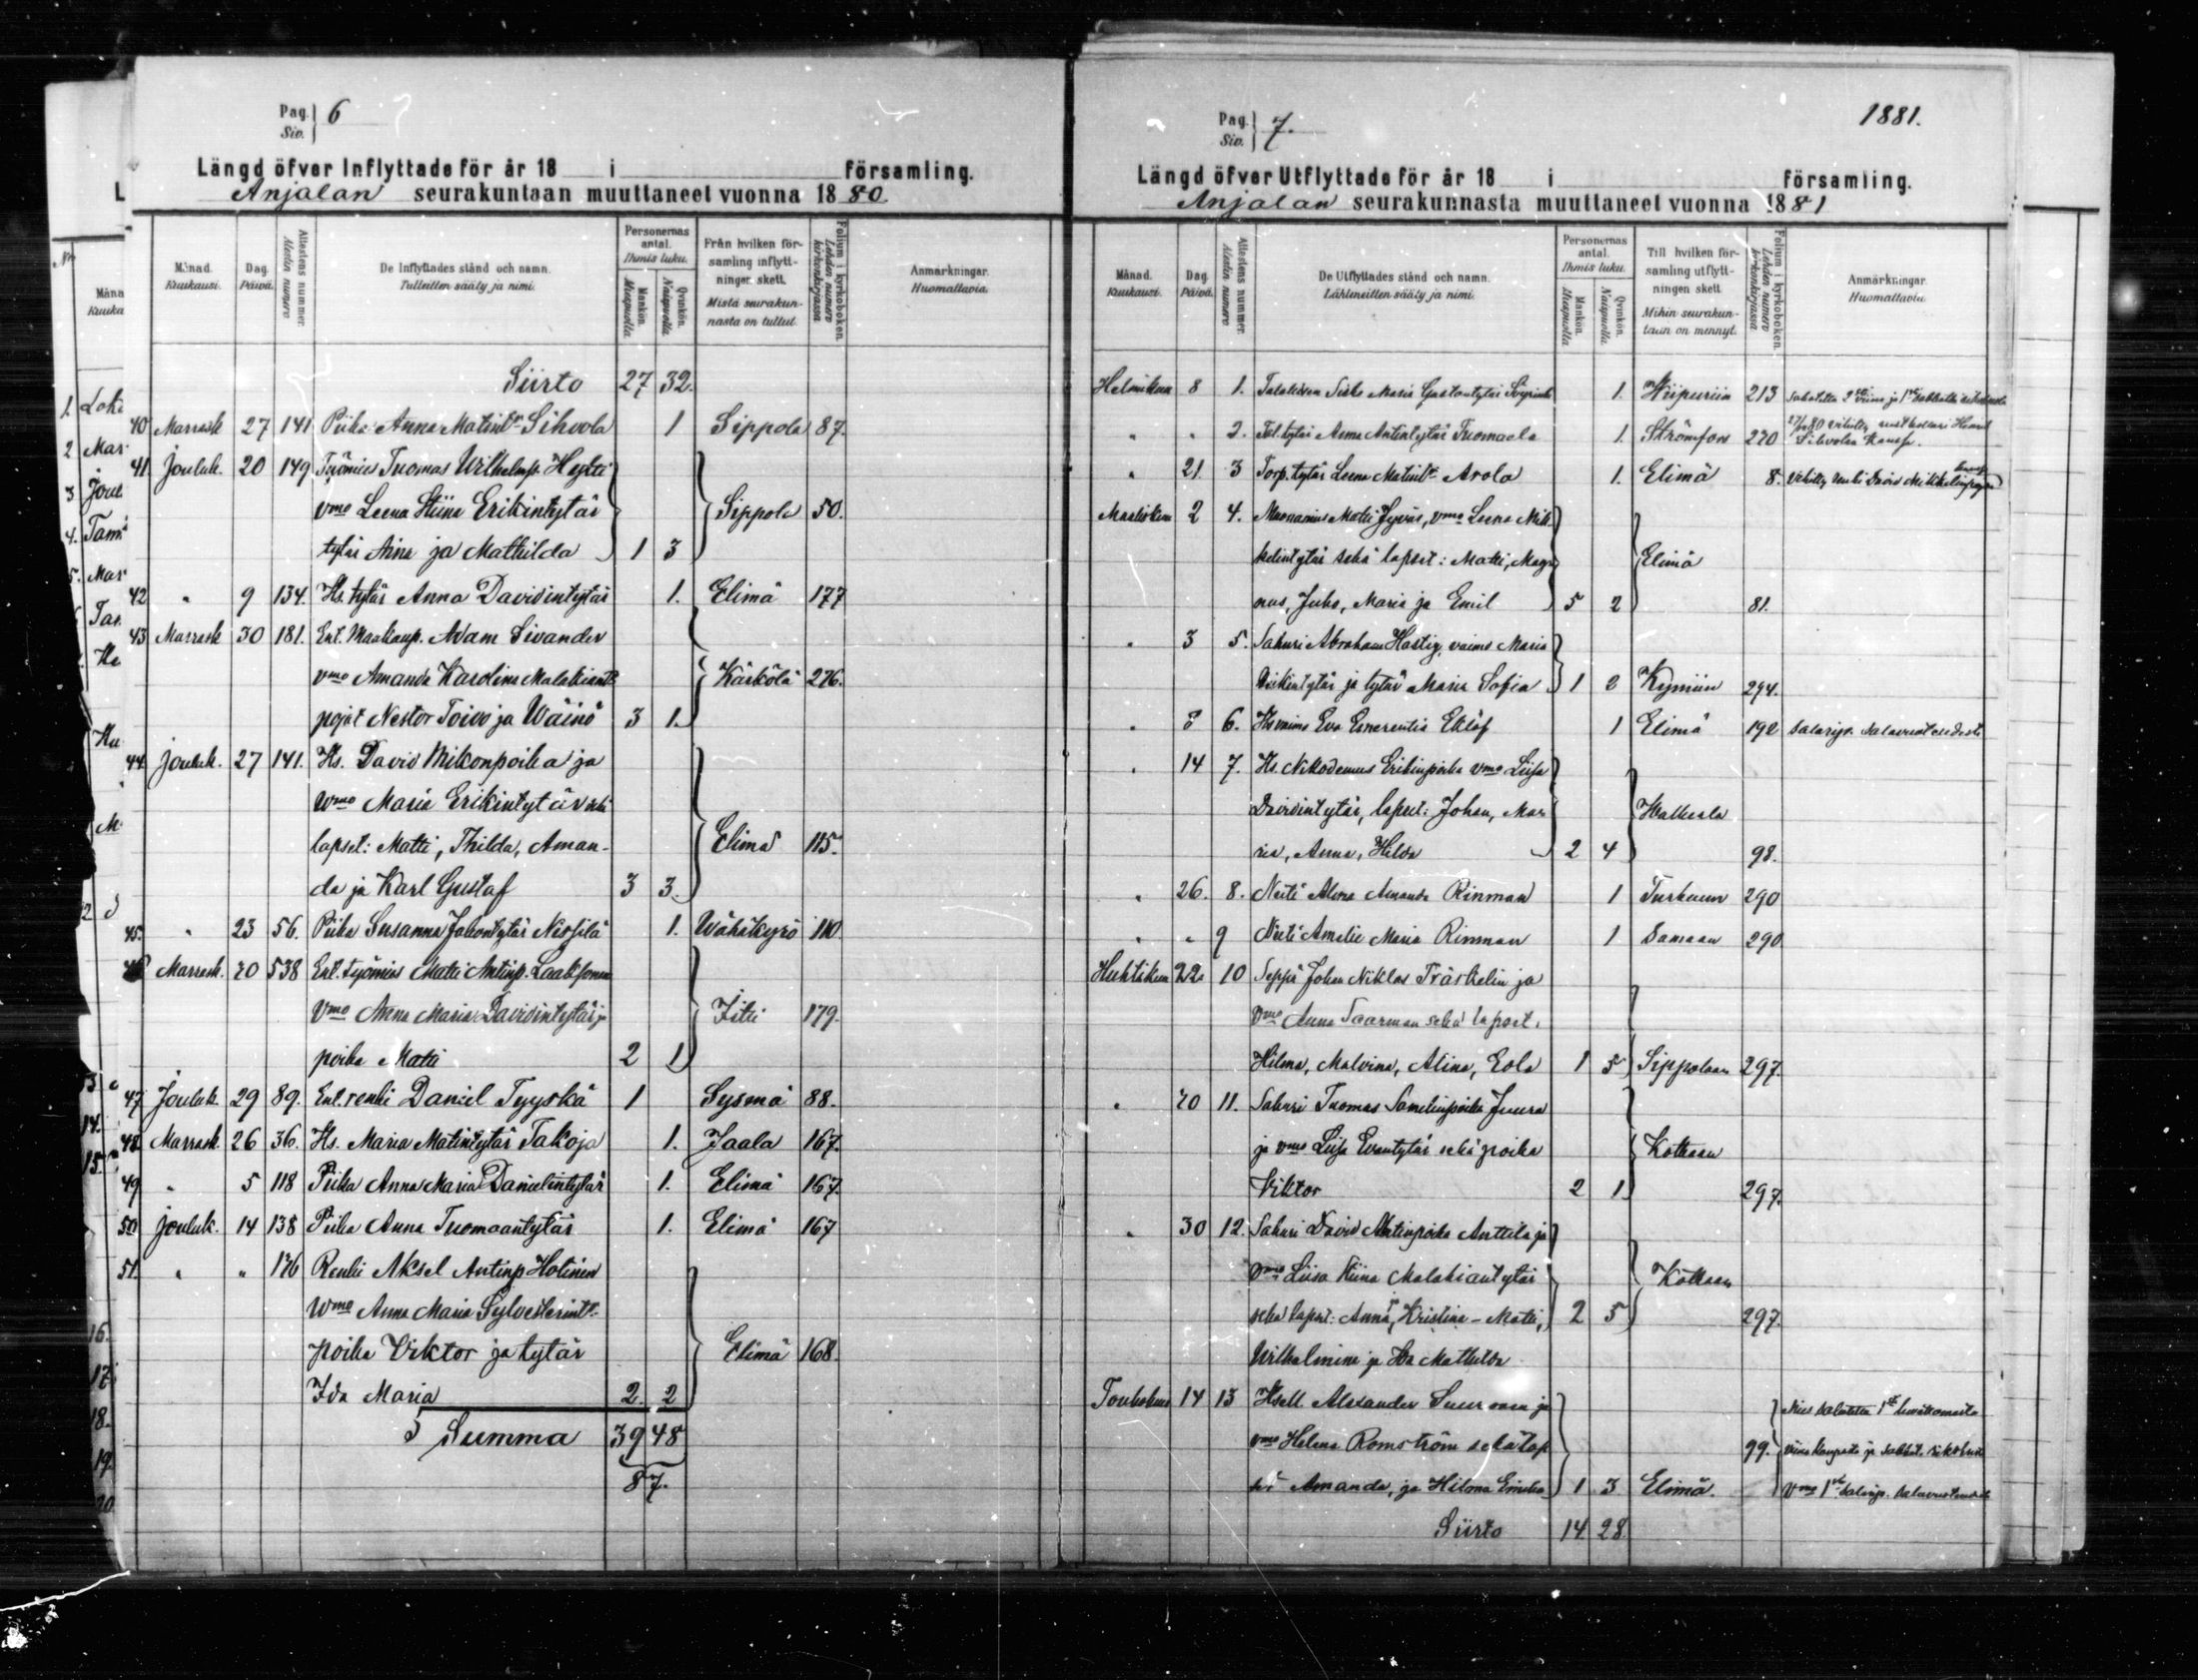 Pag. Siv. } 6
Längd öfver Inflyttade för år 18 i församling.
Anjalan seurakuntaan muuttaneet vuonna 1880.
Månad. Kuukausi.
Dag. Päivä.
Attestens nummer. Alestin numero
De Inflyttades stånd och namn. Tulleitten sääty ja nimi.
Personernas antal. Ihmis luku.
Mankön. Miespuolta
Qvinkön. Naispuolta
Från hvilken församling inflyttningen skett. Mistä seurakunnasta on tullut.
Folium i kyrkoboken. Lehden numero kirkonkirjassa
Anmärkningar. Huomattavia.
Siirto 27 32.
40 Marrask 27 141 Piika Anna Matint. Sihvola 1 Sippola 87.
41. Jouluk. 20 149 Työmies Tuomas Wilhelmp. Heikki
vmo Leena Stiina Erikintytär Sippola 50.
tytär Aina ja Mathilda 1 3
42 " 9 134. Hs. tytär Anna Davidintytär 1. Elimä 177
43 Marrask 30 181. Ent. Maakaup. Adam Sivander
vmo Amanda Karolina Malakiant. Kärkölä 276.
pojat Nestor Toivo ja Wäinö 3 1.
44. Jouluk. 27 141. Hs. David Mikonpoika ja
Wmo Maria Erikintytär
lapset: Matti, Thilda, Aman- Elimä 115.
da ja Karl Gustaf 3 3.
45. " 23 56. Piika Susanna Nissilä 1. Wähäkyrö 110.
46 Marrask. 20 538 Ent. työmies Matti Antinp. Laaksonen
Vmo Anna Maria Davidintytär Iitti 179.
poika Matti 2 1
47 Jouluk. 29 89. Ent. renki Daniel Tyyskä 1 Sysmä 88.
48 Marrask. 26 36. Hs. Maria Matintytär Takoja 1. Jaala 167.
49 " 5 118 Piika Anna Maria Danielintytär 1. Elimä 167.
50 Jouluk. 14 138 Piika Anna Tuomaantytär 1. Elimä 167
51. " " 136 Renki Aksel Antinp Holinen
Wmo Anna Maria Sylvesterint.
poika Viktor ja tytär Elimä 168.
Ida Maria 2 2
Summa 39 48
87.
Pag. Siv. } 7.
1881.
Längd öfver Utflyttade för år 18 i församling.
Anjalan seurakunnasta muuttaneet vuonna 1881
Månad. Kuukausi.
Dag. Päivä.
Attestens nummer. Alestin numero
De Utflyttades stånd och namn. Lähteneitten sääty ja nimi.
Personernas antal. Ihmis luku.
Mankön. Miespuolta
Qvinkön. Naispuolta.
Till hvilken församling utflyttningen skett. Mihin seurakuntaan on mennyt.
Folium i kyrkoboken. Lehden numero kirkonkirjassa
Anmärkningar. Huomattavia.
Helmikuu 8 1. Maria Gustavtytär 1. Wiipuriin 213
" " 2. Tal. tytär Anna Antintytär Tuomaala 1. Strömfors 220
" 21 3 Torp. tytär Leena Matint. Arola 1. Elimä 8.
Maaliskuu 2 4. Matti Jyväs, vmo Leena Mik-
kelintytär sekä lapset: Matti, Mag- Elimä
nus, Juho, Maria ja Emil 5 2 81.
" 3 5. Sahuri Abraham Hastig, vaimo Maria
ja tytär Maria Sofia 1 2 Kymiin 294.
" 8 6. Hs vaimo Eva Esmerentia Eklöf 1 Elimä 192
" 14 7. Hs. Nikodemus Erikinpoika vmo Liisa
Davidintytär, lapset: Johan, Ma-
ria, Anna, Hilda 2 4 98.
" 26. 8. Neiti Alma Amanda Rinman 1 Turkuun 290
" " 9 Neiti Amelie Maria Rinman 1 Samaan 290
Huhtikuu 22. 10 Seppä Johan Niklas Träskelin ja
vmo Anna Saarman sekä lapset.
Hilma, Malvina, Alina, Eola 1 5 Sippolaan 297.
" 20 11. Sahuri Tuomas Samelinpoika Juura
ja vmo Liisa sekä poika Kotkaan
Viktor 2 1 297.
" 30 12. Sahuri David Anttila ja
vmo Liisa Stiina Malakiantytär Kotkaan
sekä lapset: Anna, Kristina - Matti, 2 5 297.
Wilhelmina ja Ida Mathilda
Toukokuu 14 13 Alexander ja
vmo Helena Romström sekä lap 99.
set Amanda, ja Hilma 1 3 Elimä.
Siirto 14 28.